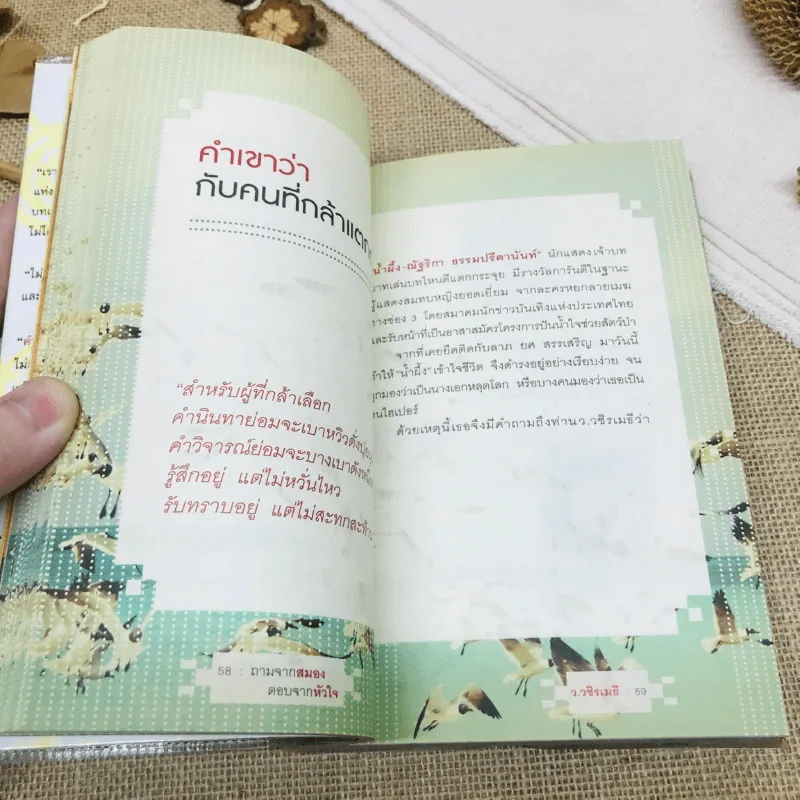 คำเขาว่า
กับคนที่กล้าแตก
"สำหรับผู้ที่กล้าเลือก
คำนินทาย่อมจะเบาหวิวดั่งปุย
คำวิจารณ์ย่อมจะบางเบาดัง
รู้สึกอยู่ แต่ไม่หวั่นไหว
รับทราบอยู่ แต่ไม่สะทกสะท้าน
58 : ถามจากสมอง
ตอบจากหัวใจ
น้ำผึ้ง-ณัฐริกา ธรรมปรีดานันท์" นักแสดงเจ้าบท
บาทเล่นบทไหนตีแตกกระจุย มีรางวัลการันตีในฐานะ
ผู้แสดงสมทบหญิงยอดเยี่ยม จากละครหยกลายเมฆ
ทางช่อง 3 โดยสมาคมนักข่าวบันเทิงแห่งประเทศไทย
และรับหน้าที่เป็นอาสาสมัครโครงการปันน้ำใจช่วยสัตว์ป่า
จากที่เคยยึดติดกับลาภ ยศ สรรเสริญ มาวันนี้
ทำให้ "น้ำผึ้ง" เข้าใจชีวิต จึงดำรงอยู่อย่างเรียบง่าย จน
ถูกมองว่าเป็นนางเอกหลุดโลก หรือบางคนมองว่าเธอเป็น
คนไฮเปอร์
ด้วยเหตุนี้เธอจึงมีคำถามถึงท่านว.วชิรเมธีว่า
ว.วชิรเมธี : 59